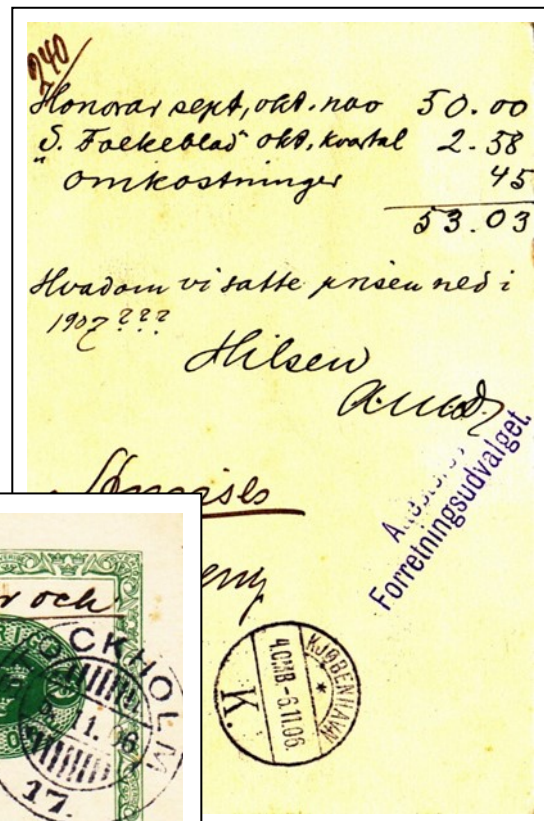 240
Honorar sept, okt. nov 50.00
S. Folkeblad" okt, kvartal 2-58
" omkostninger 45
53.03
Hvad om vi satte prisen ned i
1907???
Hilsen
Forretningsudvalget.
r och
KJØBENHAVN
4.OMB-6.11.06
K.
OCKHOLM
11.06
17.